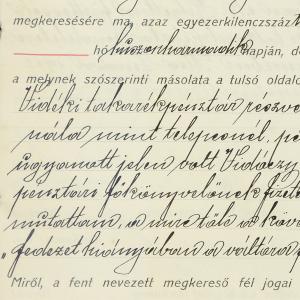 megkeresésére ma, azaz egyezerkilenczszáz
hó huszonharmadik napján, d
a melynek szószerinti másolata a tulsó oldalo
Vidéki takarékpénztár részve
nála mint telepesnél, pe
ugyanott jelen volt Vidaczy
pénztári főkönyvelőnek fizeté
mutattam, a mire tőle a köve
„fedezet hiányában a váltóra f
Miről, a fent nevezett megkereső fél jogai